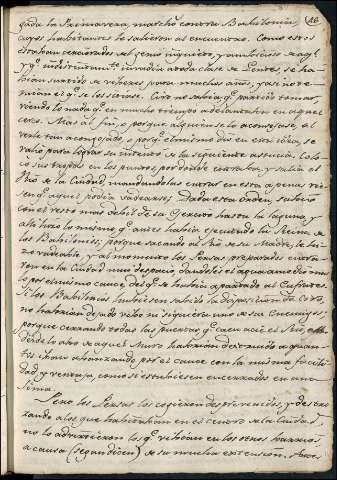 46
gada la Primavera, marchó contra Babilonia,
cuyos habitantes le salieron al encuentro. Como estos
estaban cerciorados del genio inquieto, y ambicioso de aql.
y qe. indistintamte. invadia a toda clase de Gentes, se ha
bian surtido de viveres para muchos años, y asi no te
mian el qe. se les sitiase. Ciro no sabia qe. partido tomar,
viendo lo nada qe. en mucho tiempo adelantaba en aquel
cerco. Mas al fin, o porque alguien se lo aconsejase, al
verle tan acongojado, o porqe. él mismo dió en esta idea, se
valió para lograr su intento de la siguiente astucia. Colo
có sus tropas en los puntos por donde entraba, y salia el
Rio de la Ciudad, mandandolas entrar en esta apenas vie
sen qe. aquel podia vadearse. Dada esta orden, subió
con el resto mas debil de su Ejercito hasta la laguna, y
alli hizo lo mismo qe. antes habia ejecutado la Reina de
los Babilonios; porque sacando al Rio de su Madre, le hi
zo vadeable, y al momento los Persas preparados entra
ron en la Ciudad muy despacio, dandoles el agua a medio mus
lo por el mismo cauce, del qe. se habia apartado al Eufrates.
Si los Babilonios hubiesen sabido la disposicion de Ciro,
no habrian dejado vivo ni siquiera uno de sus Enemigos;
porque cerrando todas las puertas qe. caen acia el Rio,
desde lo alto de aquel Muro habrian destruido a quan
tos iban abanzando por el cauce con la misma facili
dad, y ventaja, como si estubiesen encerrados en una
sima.
Pero los Persas los cogieron desprevenidos, y destro
zando a los que habitaban en el centro de la Ciudad,
no lo advirtieron los qe. vibian en los otros barrios
a causa (segun dicen) de su mucha extension.